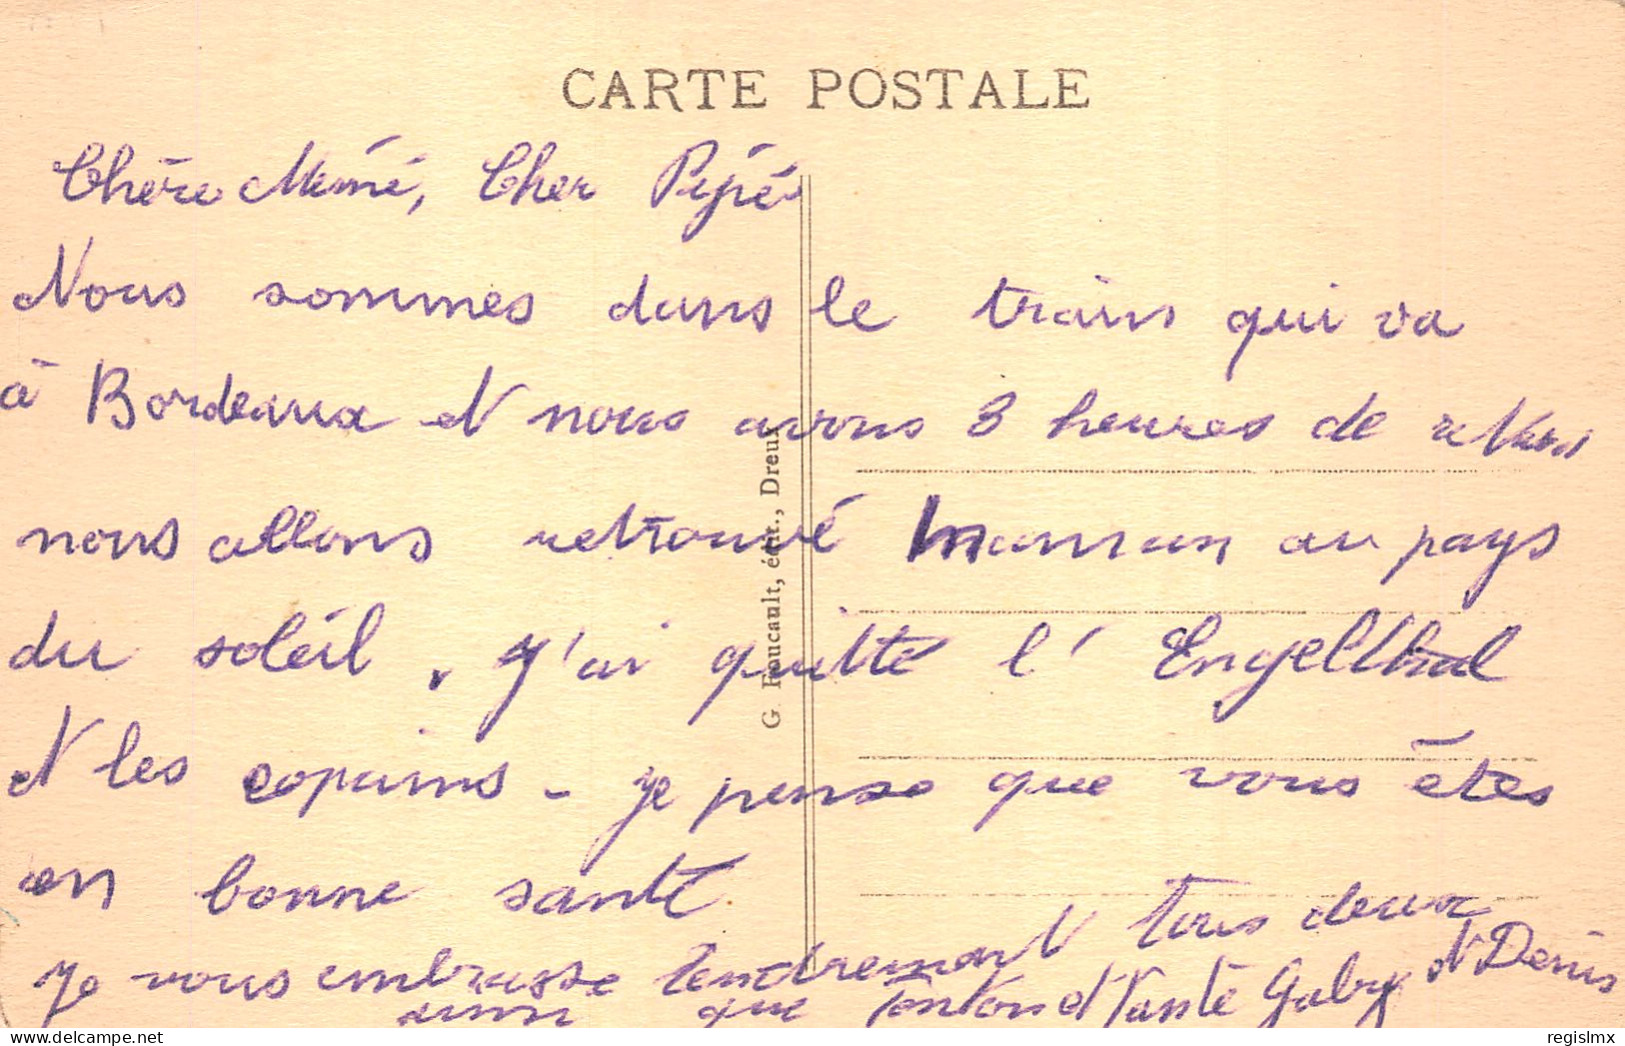 CARTE POSTALE
Chère Mémé, Cher Pépé
Nous sommes dans le train qui va
à Bordeaux et nous avons 3 heures de retard
nous allons retrouvé Maman au pays
du soléil. J'ai quitté l'Engelthal
et les copains - je pense que vous êtes
en bonne santé
je vous embrasse tendrement tous deux
ainsi que Tonton et Tante Gaby et Denis
G. Foucault, édit., Dreux
regislmx